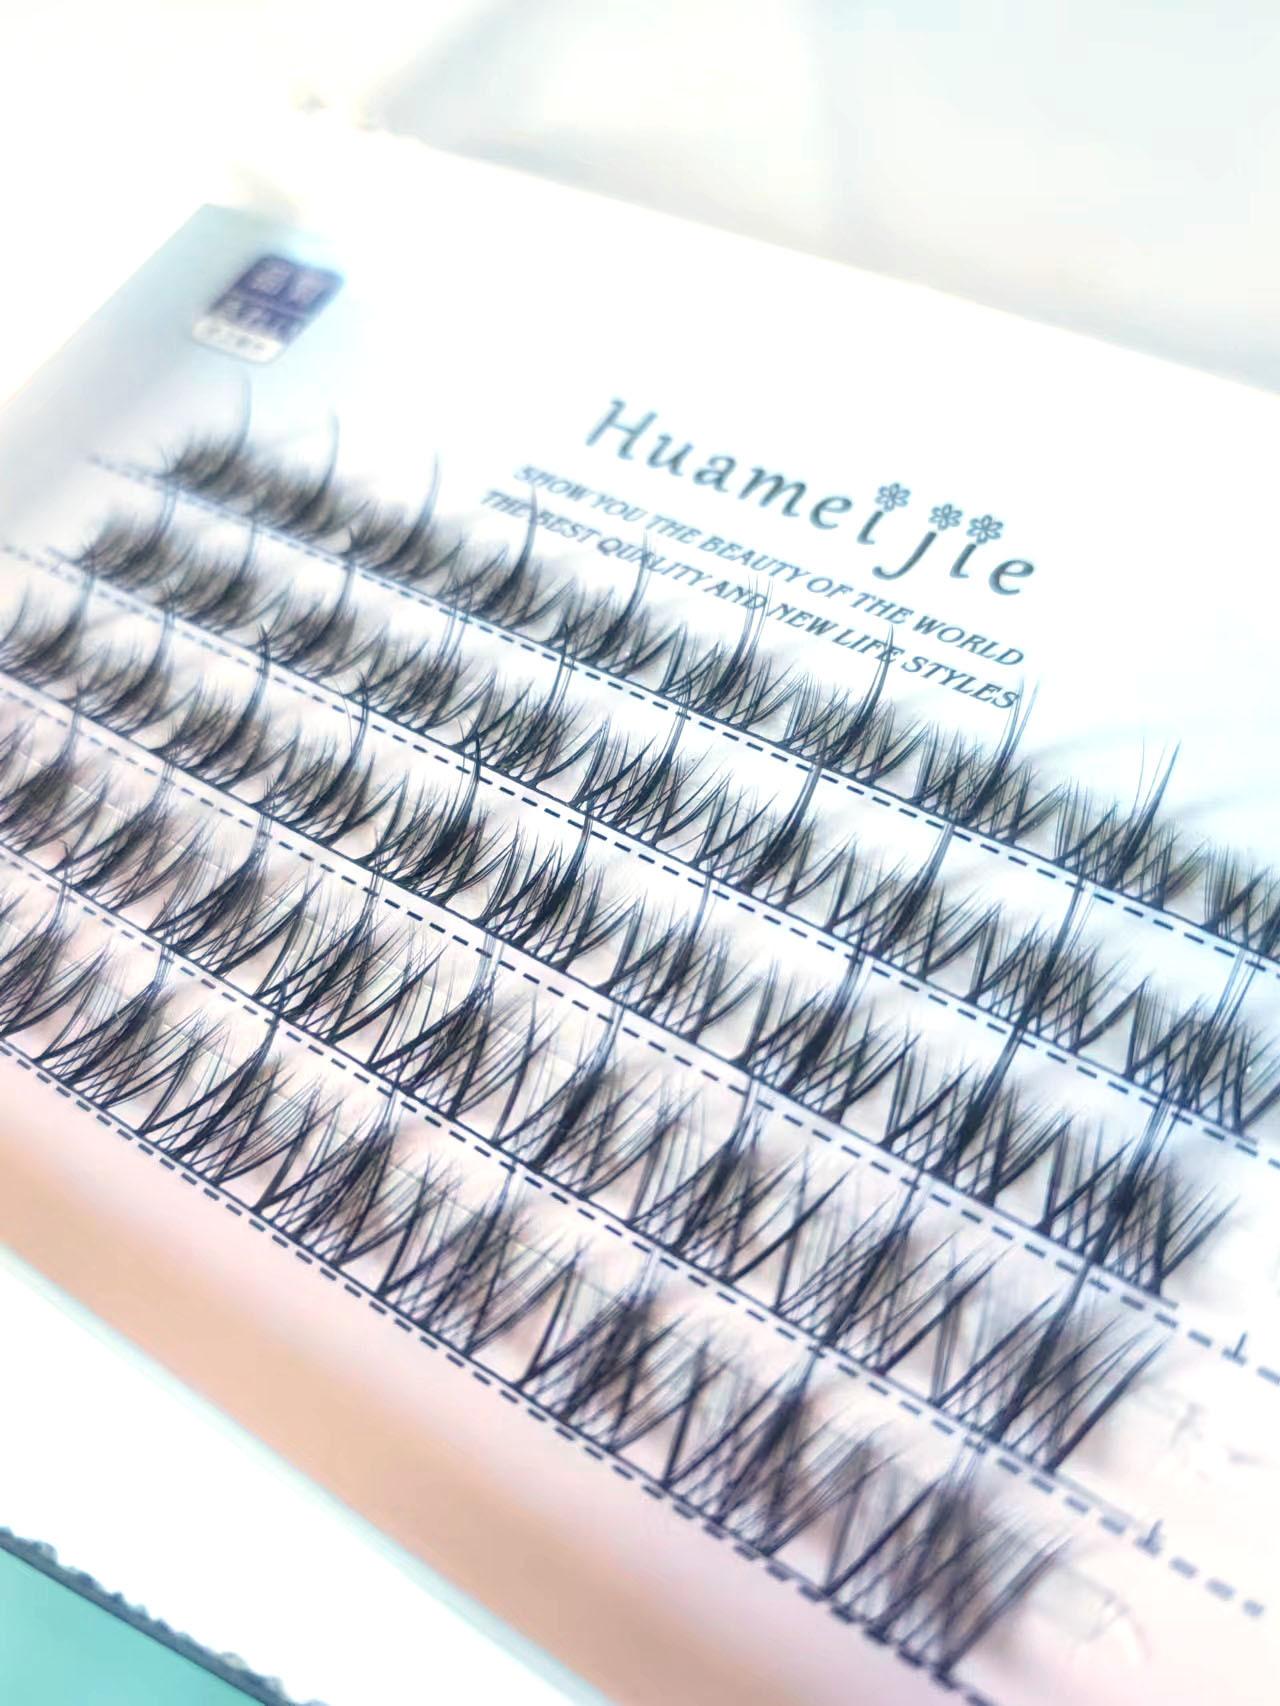 Huameijie
SHOW YOU THE BEAUTY OF THE WORLD
THE BEST QUALITY AND NEW LIFE STYLES